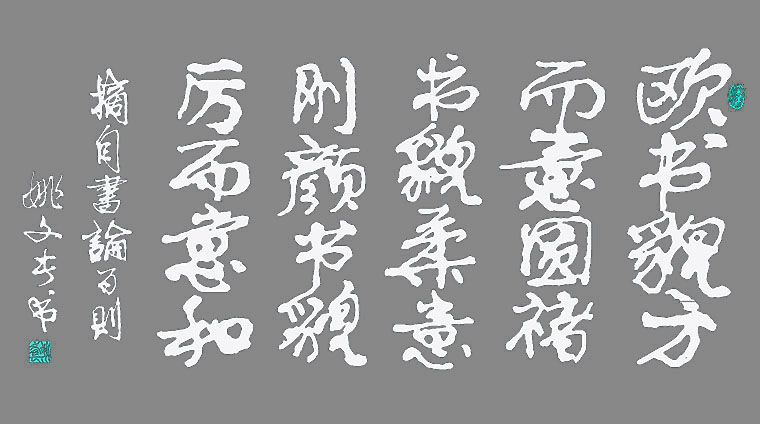 欧书貌方
而意圆褚
书貌柔意
刚颜书貌
厉而意和
摘自书論百則
姚文奇书